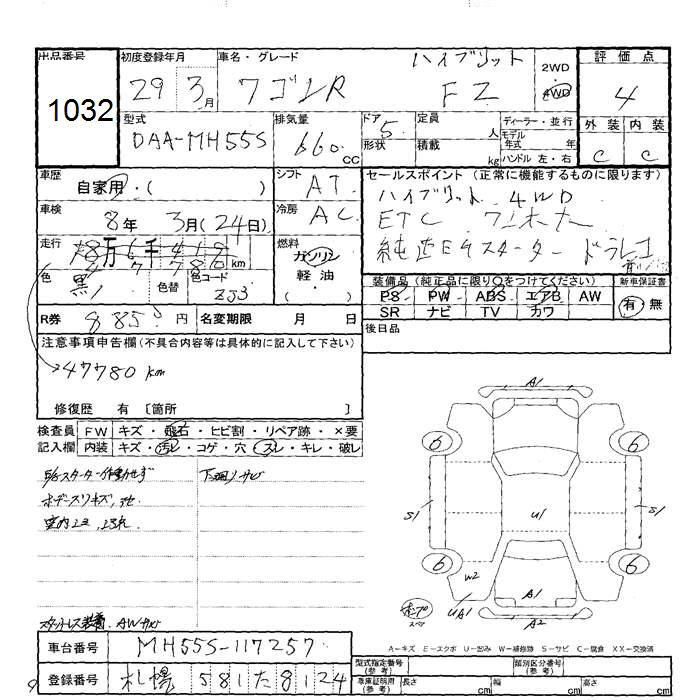 出品番号 初度登録年月 車名・グレード ハイブリット 2WD 評価点
1032 29 3月 ワゴンR FZ 4WD 4
型式 排気量 ドア 定員 ディーラー・並行 外装 内装
DAA-MH55S 660 CC 5 形状 人 積載 kg モデル年式 年 ハンドル 左・右 C C
車歴 自家用・( ) シフト AT セールスポイント(正常に機能するものに限ります)
車検 8年 3月(24日) 冷房 AC ハイブリット 4WD
ETC
走行 万 千 km 燃料 ガソリン 軽油 ( ) 純正 スターター ドラレコ
色 黒 色替 色コード ZJ3
装備品(純正品に限り〇をつけてください) 新車保証書
PS PW ABS エアB AW 有・無
SR ナビ TV カワ
R券 8850円 名変期限 月 日 後日品
注意事項申告欄(不具合内容等は具体的に記入して下さい)
47780km
修復歴 有 〔箇所 〕
検査員 FW キズ・飛石・ヒビ割・リペア跡・×要
記入欄 内装 キズ・汚レ・コゲ・穴・スレ・キレ・破レ
E/Gスターター作動せず 下廻りサビ
ボデースリキズ,
室内
AWサビ
A1
6 6
S1 U1 S1
6 6
W2
UA1 A1
A2
A-キズ E-エクボ U-凹み W-補修跡 S-サビ C-腐食 XX-交換済
車台番号 MH55S-117257
型式指定番号(参考) 類別区分番号(参考)
登録番号 札幌 581 た 8124
車庫証明用(参考) 長さ cm 幅 cm 高さ cm